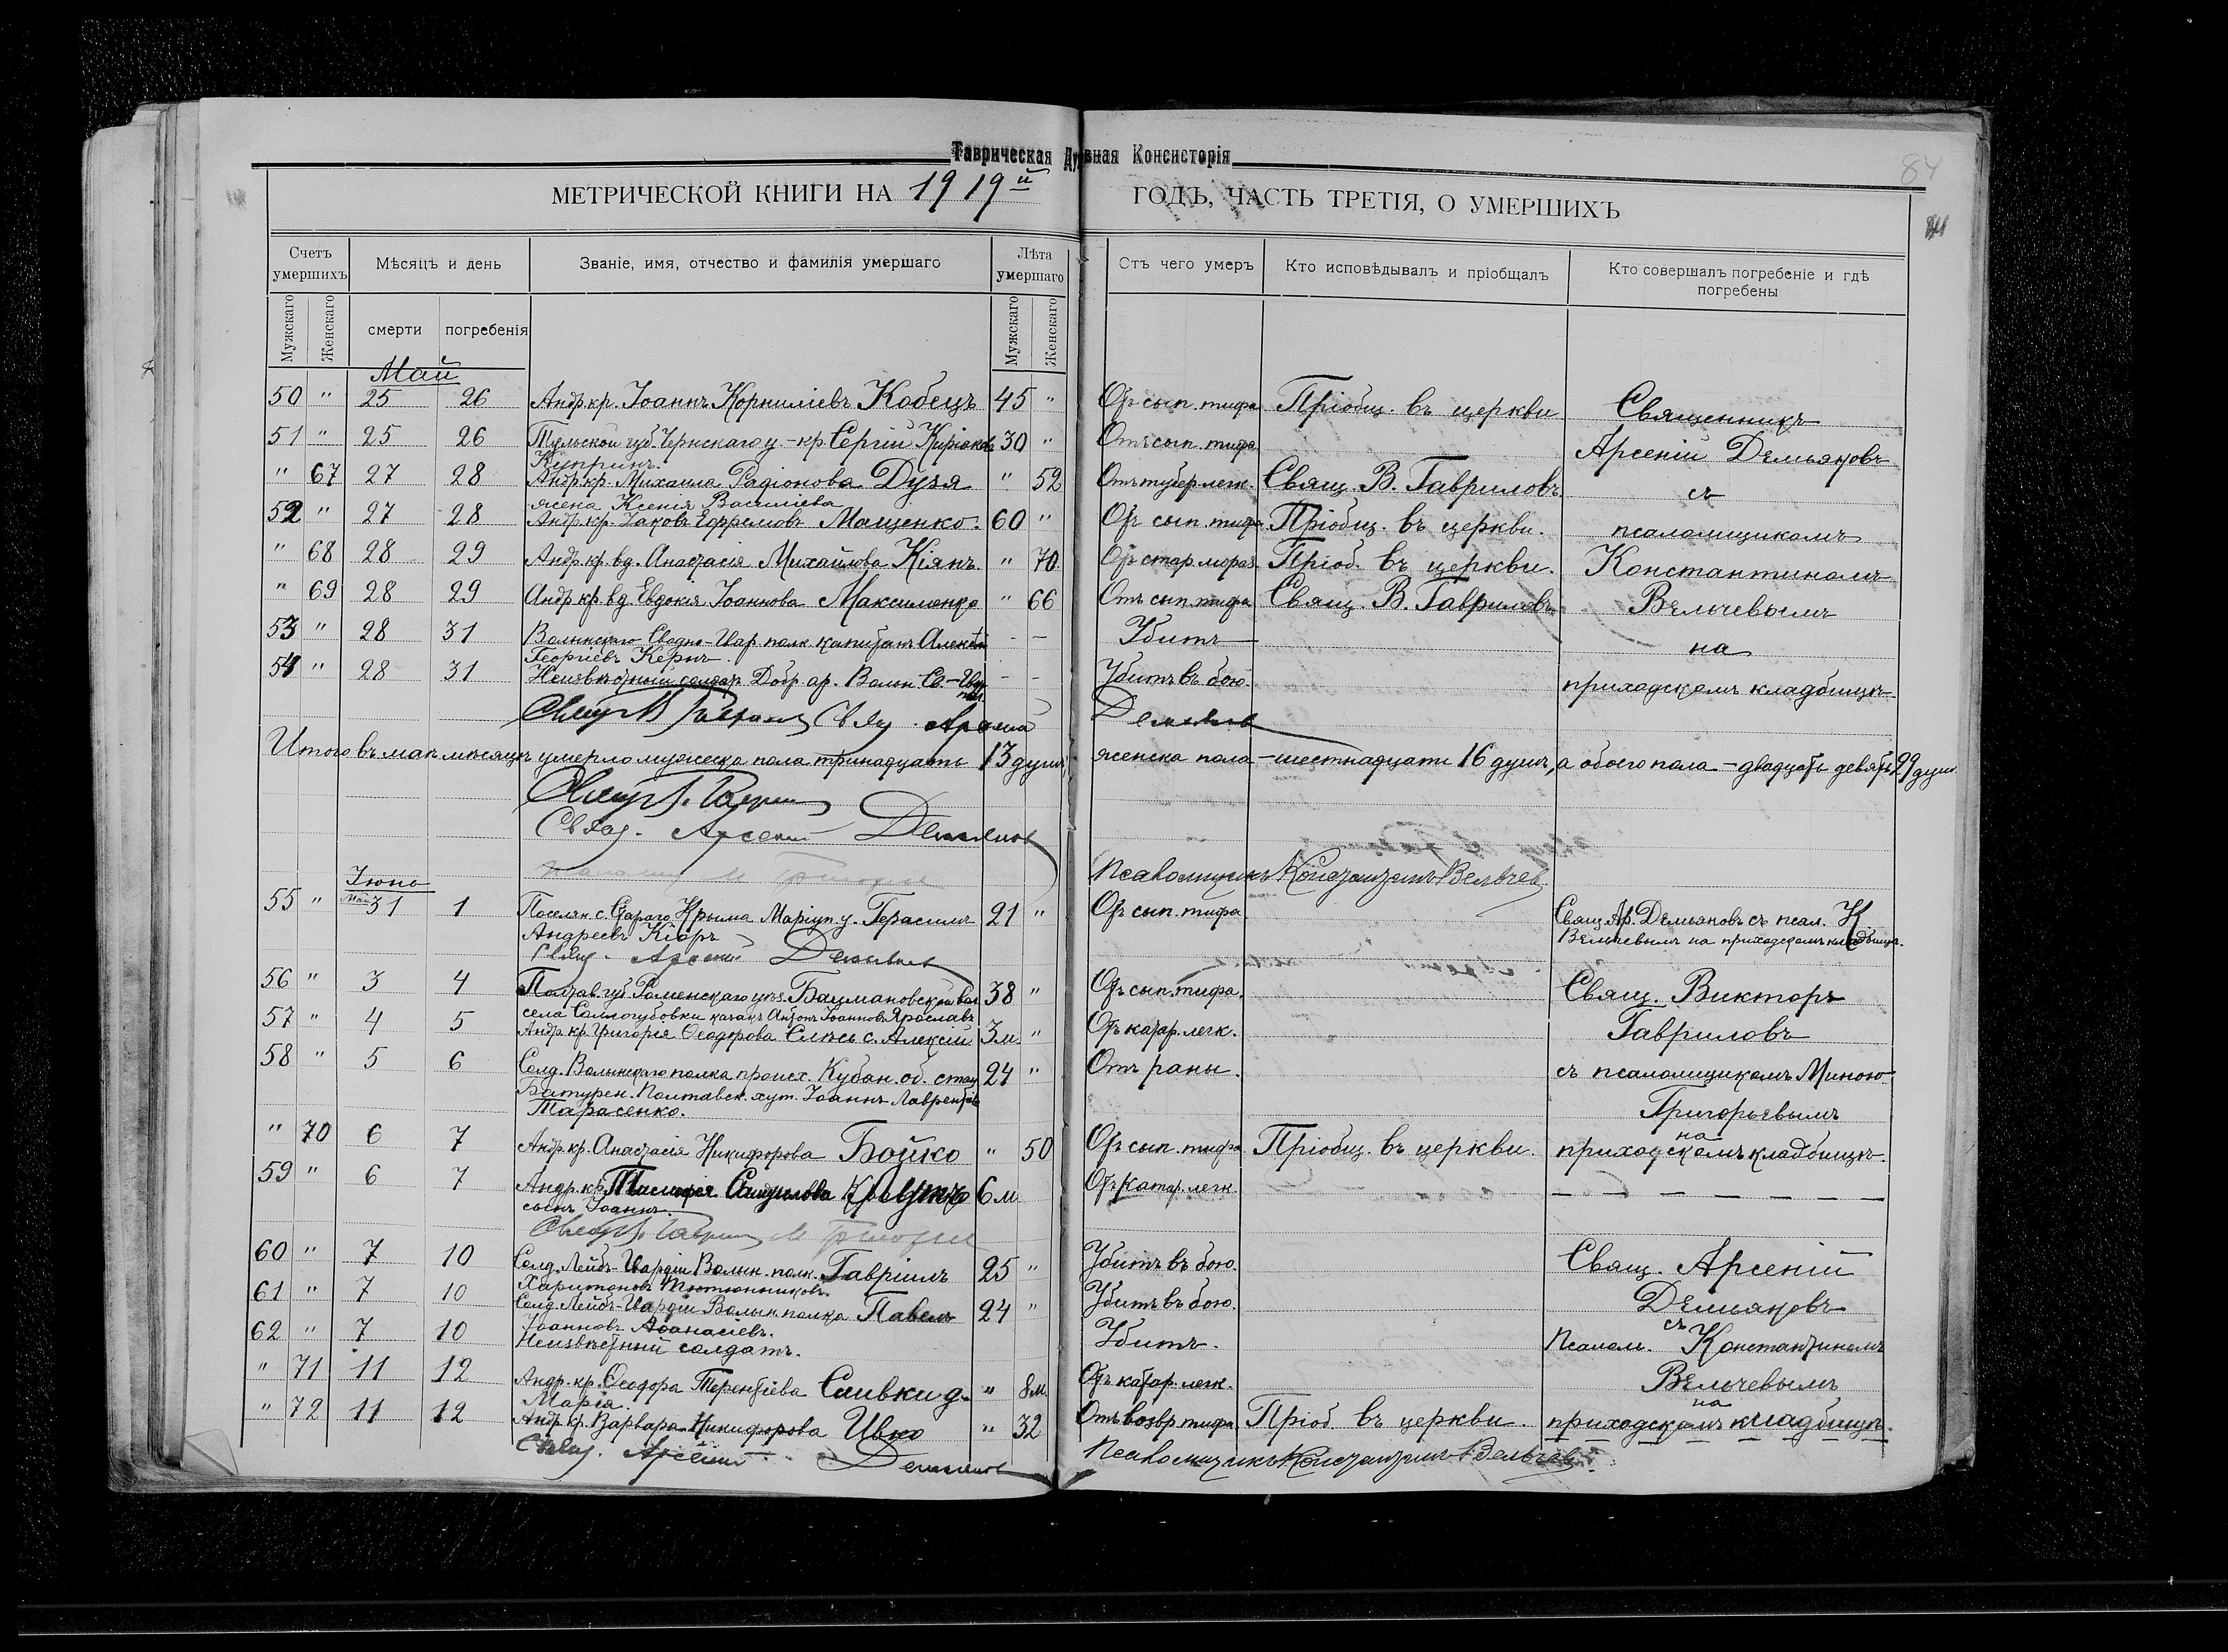 Таврическая Духовная Консисторія
84
МЕТРИЧЕСКОЙ КНИГИ НА 1919й ГОДЪ, ЧАСТЬ ТРЕТІЯ, О УМЕРШИХЪ
Счетъ умершихъ Мѣсяцъ и день Званіе, имя, отчество и фамилія умершаго Лѣта умершаго Отъ чего умеръ Кто исповѣдывалъ и пріобщалъ Кто совершалъ погребеніе и гдѣ погребены
Мужскаго Женскаго смерти погребенія Мужскаго Женскаго
Май
50 " 25 26 Андр. кр. Іоаннъ Корниліевъ Кобецъ 45 " Отъ сып. тифа Пріобщ. въ церкви Священникъ
51 " 25 26 Тульской губ. Чернскаго у. - кр. Сергій Киріаковъ 30 " Отъ сып. тифа Арсеній Демьяновъ
Купринъ.
" 67 27 28 Андр. кр. Михаила Радіонова Дузя " 52 Отъ тубер. легк. Свящ. В. Гавриловъ съ
жена Ксенія Василіева
52 " 27 28 Андр. кр. Іаковъ Ефремовъ Мащенко. 60 " Отъ сып. тифа Пріобщ. въ церкви. псаломщикомъ
" 68 28 29 Андр. кр. вд. Анастасія Михайлова Кіянъ. " 70 Отъ стар. мораз. Пріоб. въ церкви. Константиномъ
" 69 28 29 Андр. кр. вд. Евдокія Іоаннова Максименко " 66 Отъ сып. тифа Свящ. В. Гавриловъ Вельчевымъ
53 " 28 31 Волынскаго Сводно-Гвар. полк. капитанъ Алексѣй - - Убитъ на
Георгіевъ Кернъ.
54 " 28 31 Неизвѣстный солдат. Добр. ар. Волын. Св.-Гвар. - - Убитъ въ бою. приходскомъ кладбищѣ.
полк.
Свящ. В. Гаврилов Свящ. Арсеній Демьянов
Итого въ маѣ мѣсяцѣ умерло мужеска пола тринадцать 13 душъ, женска пола - шестнадцать 16 душъ, а обоего пола - двадцать девять 29 душ.
Свящ. В. Гаврилов
Свящ. Арсений Демьянов
Псаломщикъ Константинъ Вельчев.
Іюнь
55 " Май 31 1 Поселян. с. Стараго Крыма Маріуп. у. Герасимъ 21 " Отъ сып. тифа Свящ. Ар. Демьяновъ съ псал. К.
Андреевъ Кіоръ Вельчевымъ на приходскомъ кладбищѣ.
Свящ. Арсений Демьянов
56 " 3 4 Полтав. губ. Роменскаго уѣз. Бацмановской вол. 38 " Отъ сып. тифа. Свящ. Викторъ
села Сологубовки казакъ Антонъ Іоанновъ Ярославъ
57 " 4 5 Андр. кр. Григорія Ѳеодорова с. Алексій 3 м. " Отъ катар. легк. Гавриловъ
58 " 5 6 Солд. Волынскаго полка происх. Кубан. об. стан. 24 " Отъ раны. съ псаломщикомъ Миною
Батурен. Полтавск. хут. Іоаннъ Лаврентьев
Тарасенко. Григорьевымъ
на
" 70 6 7 Андр. кр. Анастасія Никифорова Бойко " 50 Отъ сып. тифа Пріобщ. въ церкви. приходскомъ кладбищѣ.
59 " 6 7 Андр. кр. 6 м Отъ катар. легк.
сынъ Іоаннъ.
60 " 7 10 Солд. Лейбъ-Гвардіи Волын. полк. Гавріилъ 25 " Убитъ въ бою. Свящ. Арсеній
Харитоновъ Тютюнниковъ.
61 " 7 10 Солд. Лейбъ-Гвардіи Волын. полка Павелъ 24 " Убитъ въ бою. Демьяновъ
Іоанновъ Аѳанасіевъ. съ
62 " 7 10 Неизвѣстный солдатъ. Убитъ. псалом. Константиномъ
" 71 11 12 Андр. кр. Ѳеодора Терентіева Сливки д. " 8 м. Отъ катар. легк. Вельчевымъ
Марія. на
" 72 11 12 Андр. кр. Варвара Никифорова Ивко " 32 Отъ возвр. тифа Пріоб. въ церкви. приходскомъ кладбищѣ.
Свящ. Арсений Демьянов Псаломщикъ Константин Вельчев.